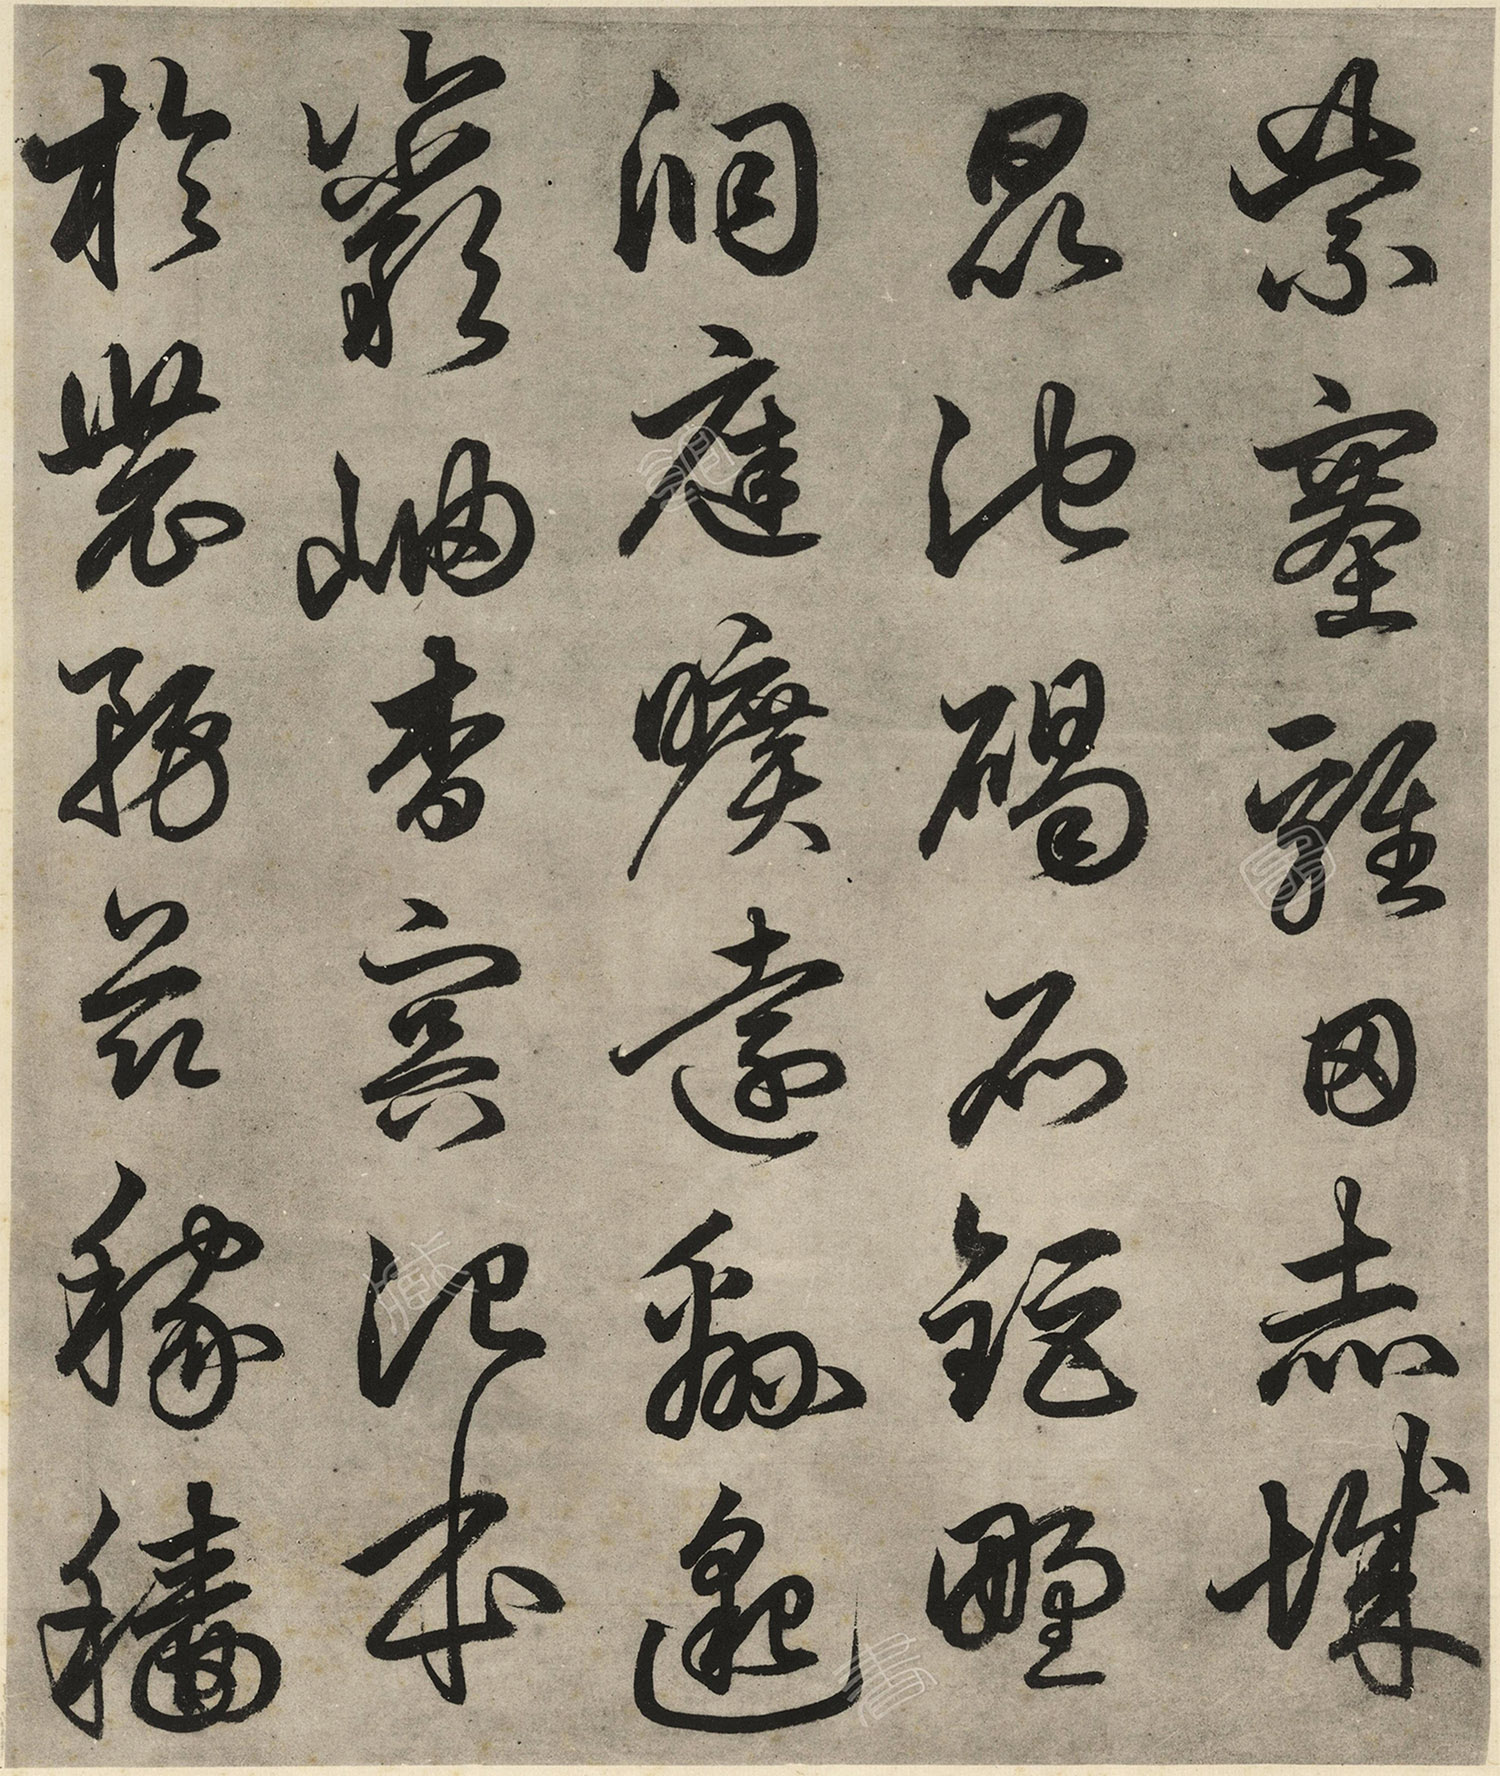 紫塞雞田赤城
昆池碣石鉅野
洞庭曠遠緜邈
巖岫杳冥治本
於農務茲稼穡